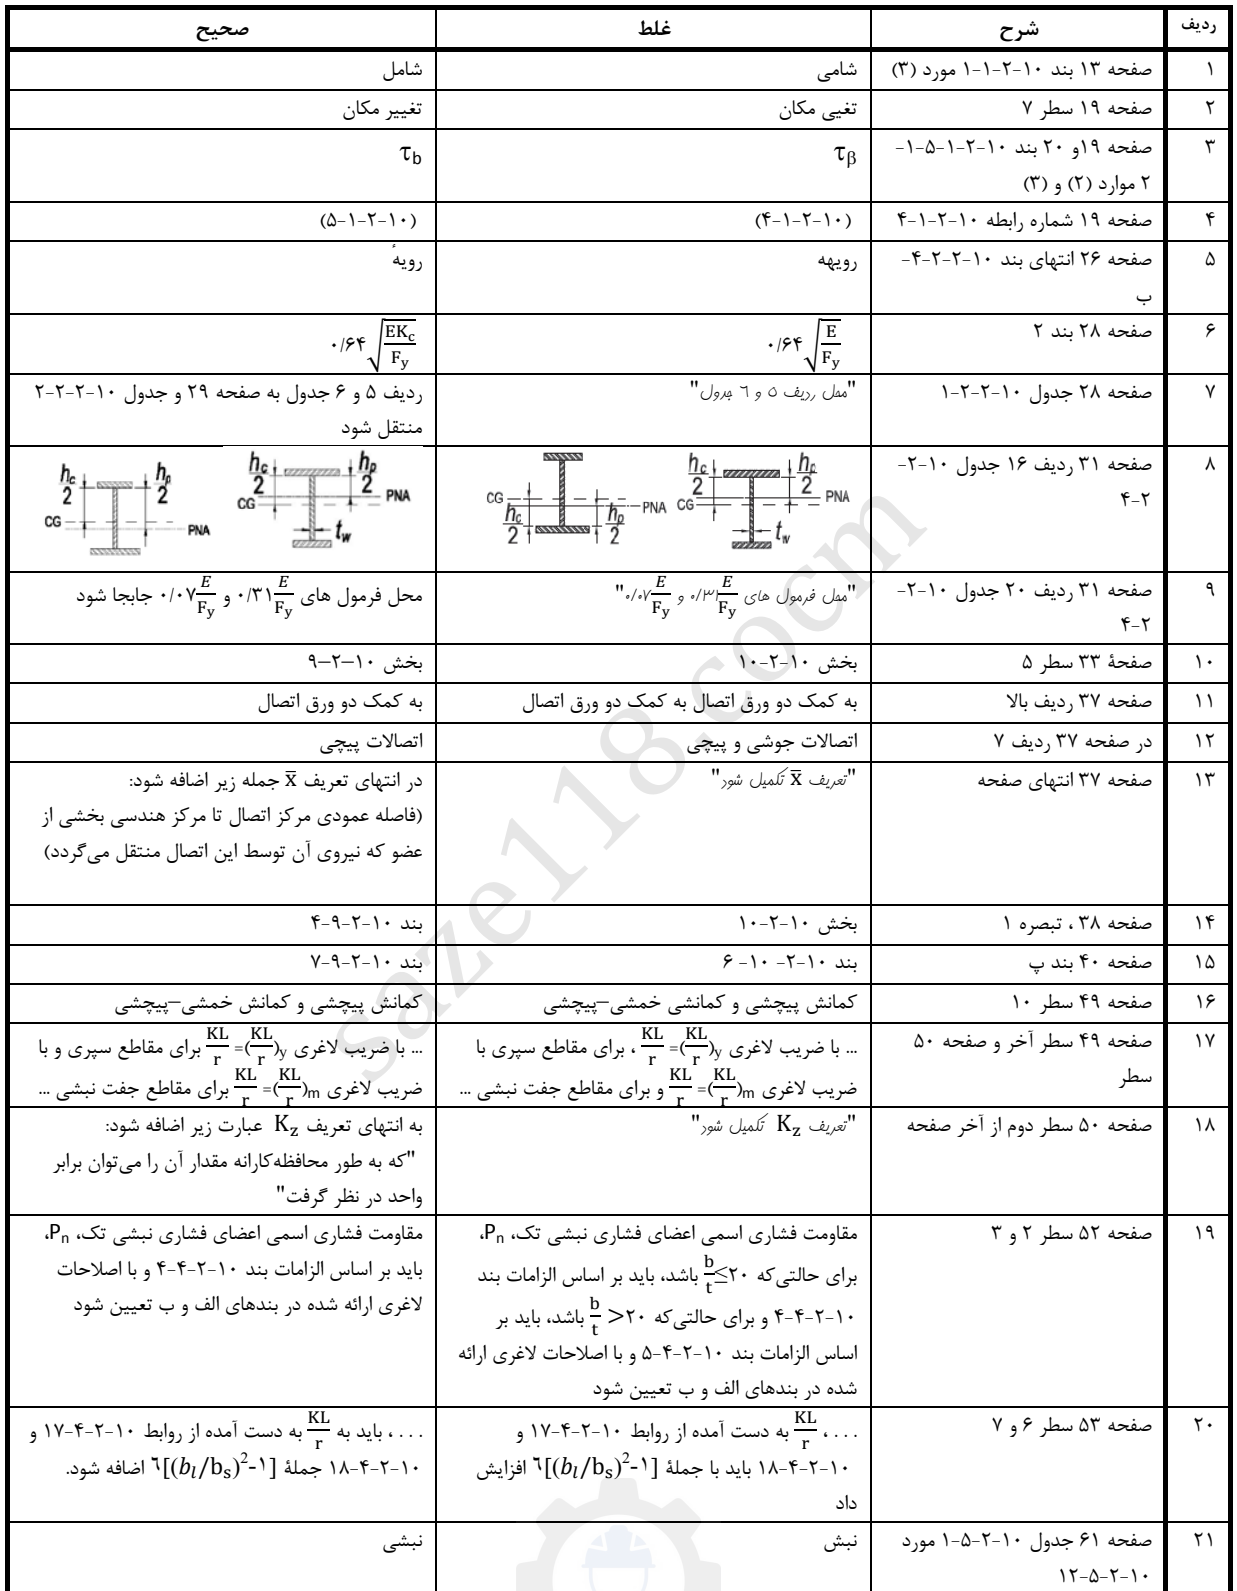 ردیف شرح غلط صحیح
۱ صفحه ۱۳ بند ۱۰-۲-۱-۱ مورد (۳) شامی شامل
۲ صفحه ۱۹ سطر ۷ تغیی مکان تغییر مکان
۳ صفحه ۱۹و ۲۰ بند ۱۰-۲-۱-۵-۱- τβ τb
۲ موارد (۲) و (۳)
۴ صفحه ۱۹ شماره رابطه ۱۰-۲-۱-۴ (۱۰-۲-۱-۴) (۱۰-۲-۱-۵)
۵ صفحه ۲۶ انتهای بند ۱۰-۲-۲-۴- رویهه رویهٔ
ب
۶ صفحه ۲۸ بند ۲ ۰/۶۴ √(E/Fy) ۰/۶۴ √(EKc/Fy)
۷ صفحه ۲۸ جدول ۱۰-۲-۲-۱ "محل ردیف ۵ و ۶ جدول" ردیف ۵ و ۶ جدول به صفحه ۲۹ و جدول ۱۰-۲-۲-۲
منتقل شود
۸ صفحه ۳۱ ردیف ۱۶ جدول ۱۰-۲-
۲-۴
hc/2 hp/2 CG PNA hc/2 hp/2 CG PNA tw
hc/2 hp/2 CG PNA hc/2 hp/2 CG PNA tw
۹ صفحه ۳۱ ردیف ۲۰ جدول ۱۰-۲- "محل فرمول های ۰/۳۱ E/Fy و ۰/۰۷ E/Fy" محل فرمول های ۰/۳۱ E/Fy و ۰/۰۷ E/Fy جابجا شود
۲-۴
۱۰ صفحهٔ ۳۳ سطر ۵ بخش ۱۰-۲-۱۰ بخش ۱۰–۲–۹
۱۱ صفحه ۳۷ ردیف بالا به کمک دو ورق اتصال به کمک دو ورق اتصال به کمک دو ورق اتصال
۱۲ در صفحه ۳۷ ردیف ۷ اتصالات جوشی و پیچی اتصالات پیچی
۱۳ صفحه ۳۷ انتهای صفحه "تعریف x̄ تکمیل شود" در انتهای تعریف x̄ جمله زیر اضافه شود:
(فاصله عمودی مرکز اتصال تا مرکز هندسی بخشی از
عضو که نیروی آن توسط این اتصال منتقل می‌گردد)
۱۴ صفحه ۳۸ ، تبصره ۱ بخش ۱۰-۲-۱۰ بند ۱۰-۲-۹-۴
۱۵ صفحه ۴۰ بند پ بند ۱۰-۲- ۱۰- ۶ بند ۱۰-۲-۹-۷
۱۶ صفحه ۴۹ سطر ۱۰ کمانش پیچشی و کمانشی خمشی–پیچشی کمانش پیچشی و کمانش خمشی–پیچشی
۱۷ صفحه ۴۹ سطر آخر و صفحه ۵۰ ... با ضریب لاغری KL/r =(KL/r)y ، برای مقاطع سپری با ... با ضریب لاغری KL/r =(KL/r)y برای مقاطع سپری و با
سطر ضریب لاغری KL/r =(KL/r)m و برای مقاطع جفت نبشی ... ضریب لاغری KL/r =(KL/r)m برای مقاطع جفت نبشی ...
۱۸ صفحه ۵۰ سطر دوم از آخر صفحه "تعریف Kz تکمیل شود" به انتهای تعریف Kz عبارت زیر اضافه شود:
"که به طور محافظه‌کارانه مقدار آن را می‌توان برابر
واحد در نظر گرفت"
۱۹ صفحه ۵۲ سطر ۲ و ۳ مقاومت فشاری اسمی اعضای فشاری نبشی تک، Pn، مقاومت فشاری اسمی اعضای فشاری نبشی تک، Pn،
برای حالتی‌که b/t ≤۲۰ باشد، باید بر اساس الزامات بند باید بر اساس الزامات بند ۱۰-۲-۴-۴ و با اصلاحات
۱۰-۲-۴-۴ و برای حالتی‌که b/t >۲۰ باشد، باید بر لاغری ارائه شده در بندهای الف و ب تعیین شود
اساس الزامات بند ۱۰-۲-۴-۵ و با اصلاحات لاغری ارائه
شده در بندهای الف و ب تعیین شود
۲۰ صفحه ۵۳ سطر ۶ و ۷ . . . ، KL/r به دست آمده از روابط ۱۰-۲-۴-۱۷ و . . . ، باید به KL/r به دست آمده از روابط ۱۰-۲-۴-۱۷ و
۱۰-۲-۴-۱۸ باید با جملهٔ ۶[(bl/bs)²-۱] افزایش ۱۰-۲-۴-۱۸ جملهٔ ۶[(bl/bs)²-۱] اضافه شود.
داد
۲۱ صفحه ۶۱ جدول ۱۰-۲-۵-۱ مورد نبش نبشی
۱۰-۲-۵-۱۲
saze118.cocm